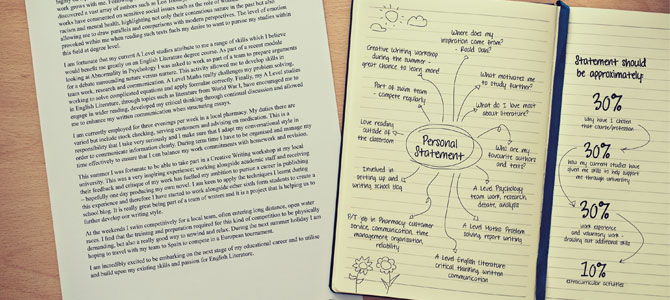 work grows with me.
discovered a vast array of authors such as Leo
works have commented on sensitive social issues such as the role of
racism and mental health, highlighting not only their contentious nature in the past but also
allowing me to draw parallels and comparisons with modern perspectives. The level of emotion
provoked within me when reading such texts fuels my desire to want to pursue my studies within
this field at degree level.
I am fortunate that my current A Level studies attribute to me a range of skills which I believe
would benefit me greatly on an English Literature degree course. As part of a recent module
looking at Abnormality in Psychology I was asked to work as part of a team to prepare arguments
for a debate surrounding nature versus nurture. This activity allowed me to develop skills in
team work, research and communication. A Level Maths really challenges my problem solving,
working to solve complicated equations and apply formulae correctly. Finally, my A Level studies
in English Literature, through topics such as literature from World War I, have encouraged me to
engage in wider reading, developed my critical thinking through continual discussion and allowed
me to enhance my written communication when structuring essays.
I am currently employed for three evenings per week in a local pharmacy. My duties there are
varied but include stock checking, serving customers and advising on medication. This is a
responsibility that I take very seriously and I make sure that I adapt my conversational style in
order to communicate information clearly. During term time I have to be organised and manage my
time effectively to ensure that I can balance my work commitments with homework and revision.
This summer I was fortunate to be able to take part in a Creative Writing workshop at my local
university. This was a very inspiring experience; working alongside academic staff and receiving
their feedback and critique of my work has fuelled my ambition to pursue a career in publishing
- hopefully one day producing my own novel. I am keen to apply the techniques I learnt during
this experience and therefore I have started to work alongside other sixth form students to create a
school blog. It is really great being part of a team of writers and it is a project that is helping us to
further develop our writing style.
At the weekends I swim competitively for a local team, often entering long distance, open water
races. I find that the training and preparation required for this kind of competition to be physically
demanding, but also a really good way to unwind and relax. During the next summer holiday I am
hoping to travel with my team to Spain to compete in a European tournament.
I am incredibly excited to be embarking on the next stage of my educational career and to utilise
and build upon my existing skills and passion for English Literature.
Where does my
inspiration come from?
- Roald Dahl?
Creative Writing workshop
during the summer -
great chance to learn more!
What motivates me
to study further?
Part of swim team
- compete regularly
What do I love most
about literature?
Love reading
outside of
the classroom
Personal
Statement
Who are my
favourite authors
and texts?
Involved in
setting up and
writing school blog
A Level Psychology
team work, research,
debate, analyst
P/T job in Pharmacy customer
service, communication, time
management, organisation,
reliability
A Level Maths Problem
solving, report writing
A Level English Literature
critical thinking, written
communication
Statement should
be approximately:
30%
Why have I chosen
that course/profession
30%
How my current studies have
given me skills to help support
me through university
30%
work experience
and voluntary work -
drawing out additional skills
10%
extracurricular activities